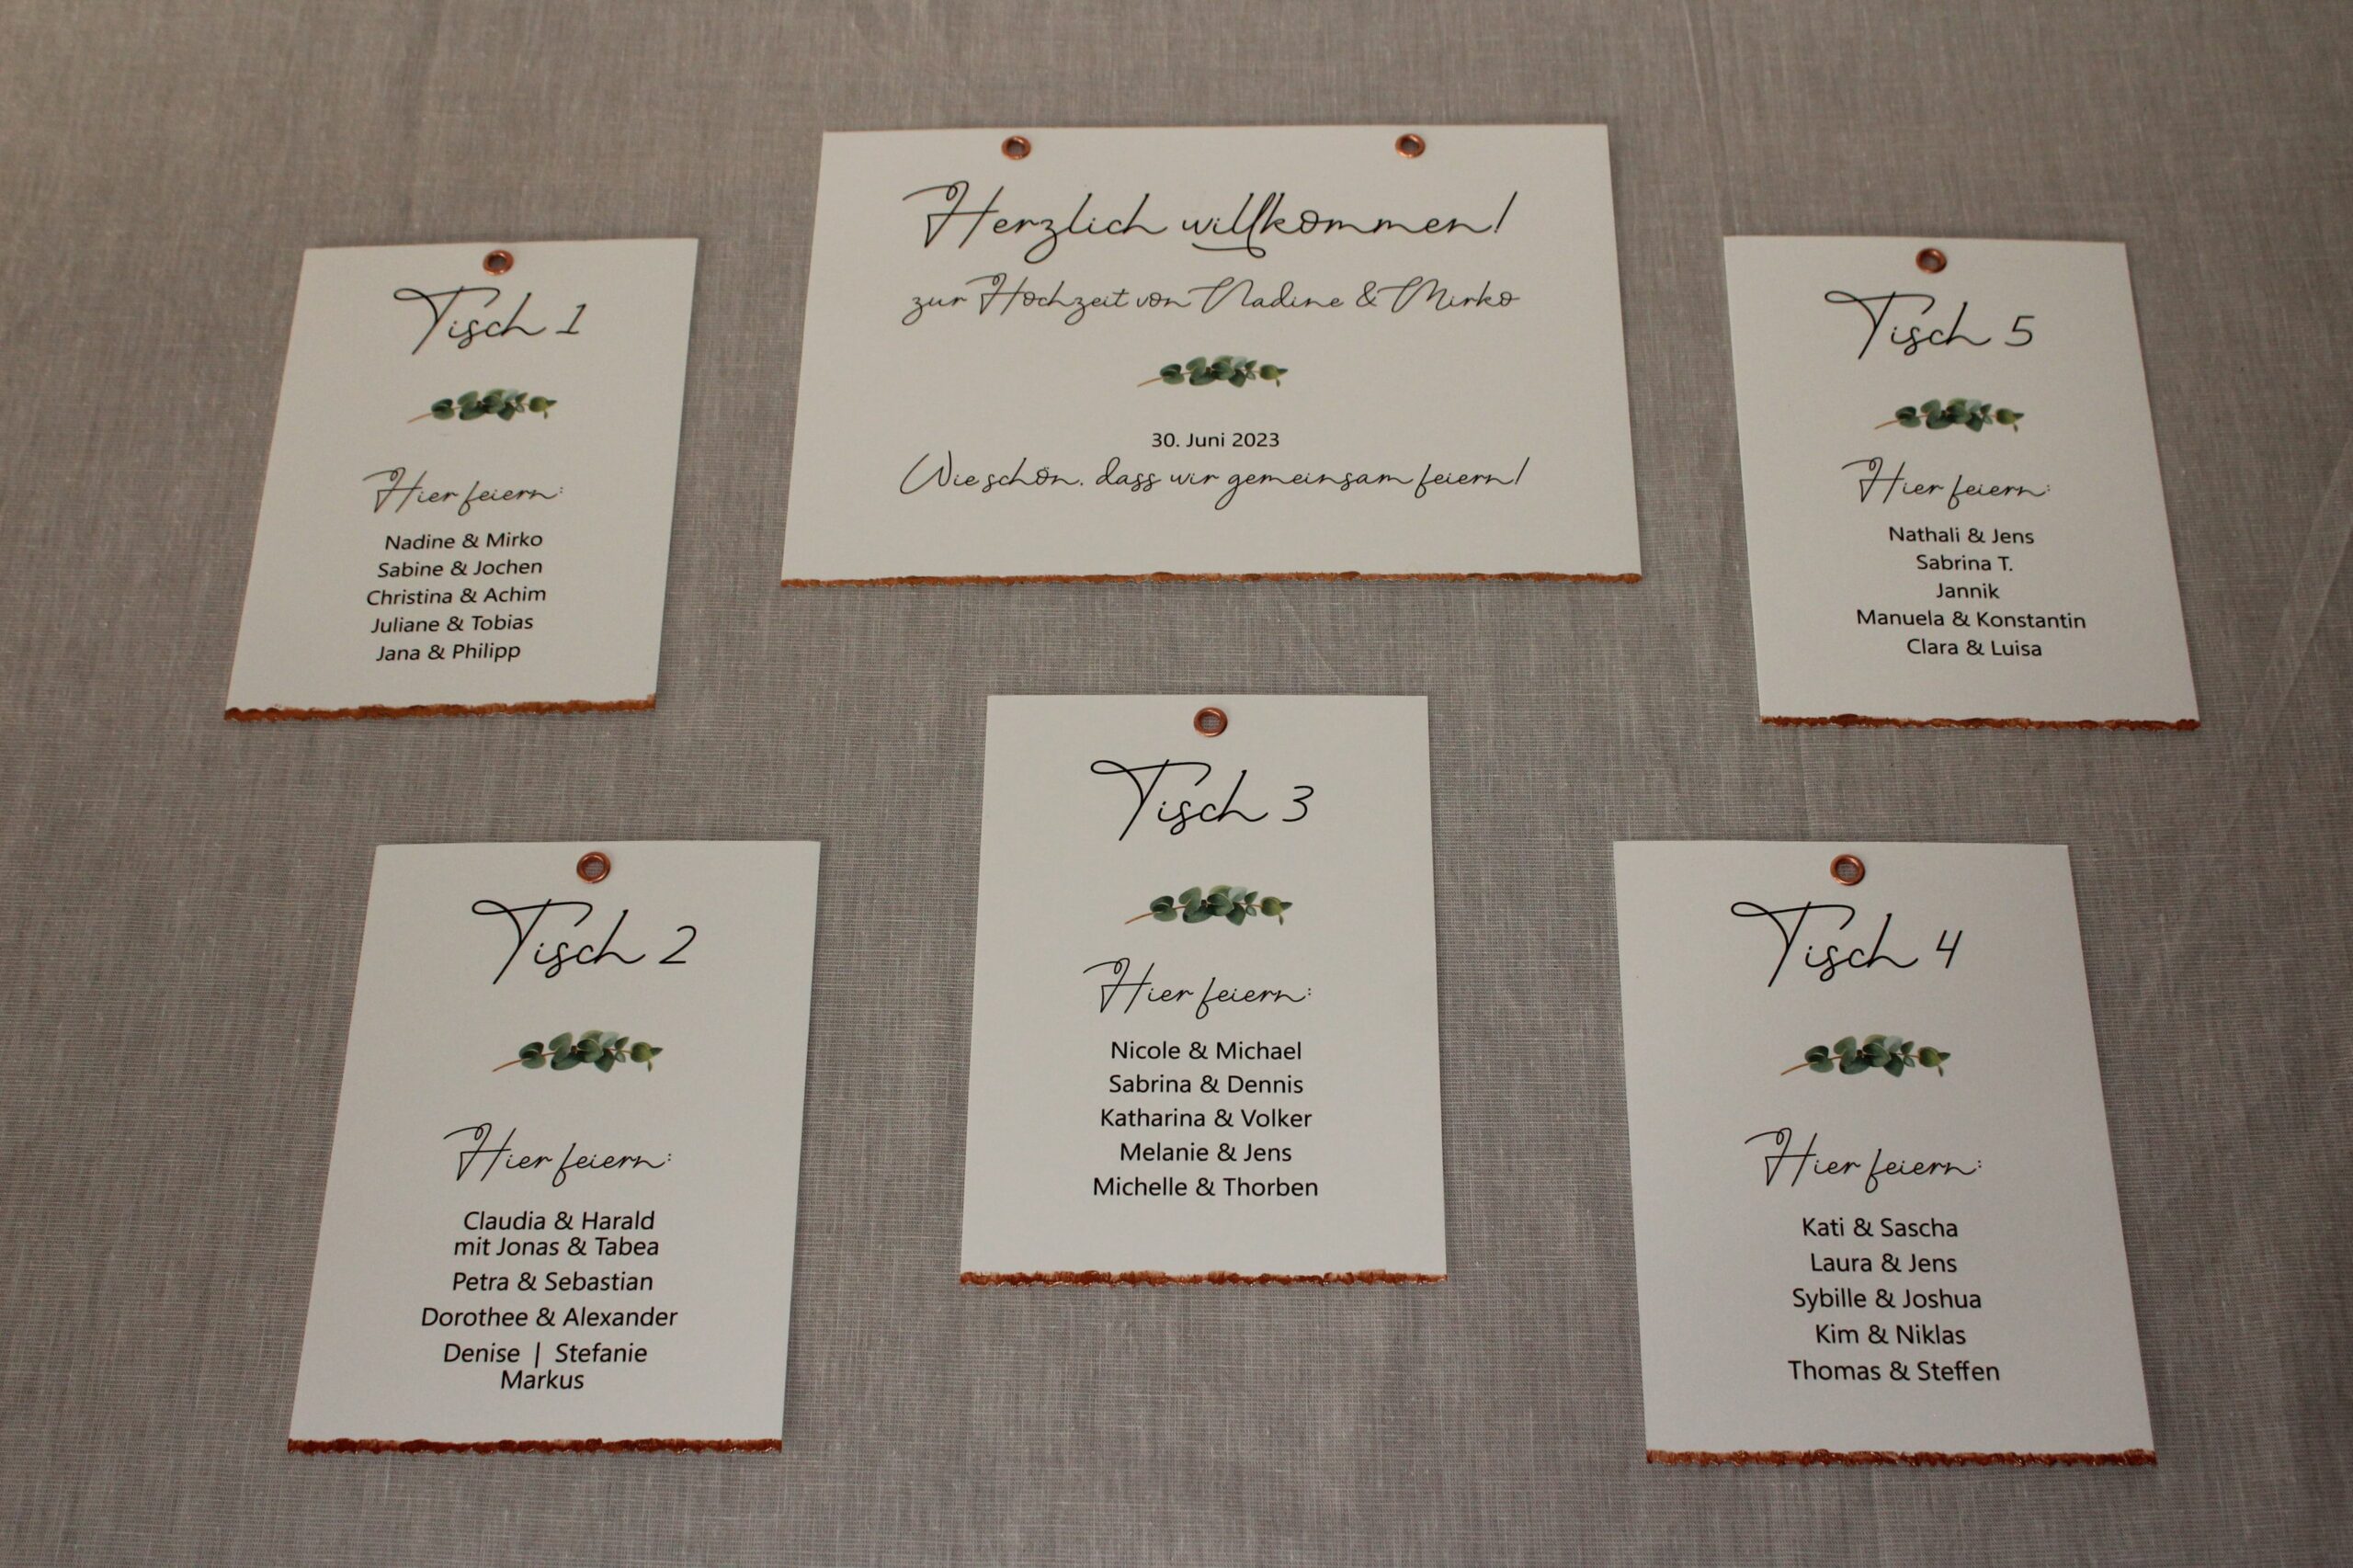 Herzlich willkommen!
zur Hochzeit von Nadine & Mirko
30. Juni 2023
Wie schön, dass wir gemeinsam feiern!
Tisch 1
Hier feiern:
Nadine & Mirko
Sabine & Jochen
Christina & Achim
Juliane & Tobias
Jana & Philipp
Tisch 2
Hier feiern:
Claudia & Harald
mit Jonas & Tabea
Petra & Sebastian
Dorothee & Alexander
Denise | Stefanie
Markus
Tisch 3
Hier feiern:
Nicole & Michael
Sabrina & Dennis
Katharina & Volker
Melanie & Jens
Michelle & Thorben
Tisch 4
Hier feiern:
Kati & Sascha
Laura & Jens
Sybille & Joshua
Kim & Niklas
Thomas & Steffen
Tisch 5
Hier feiern:
Nathali & Jens
Sabrina T.
Jannik
Manuela & Konstantin
Clara & Luisa